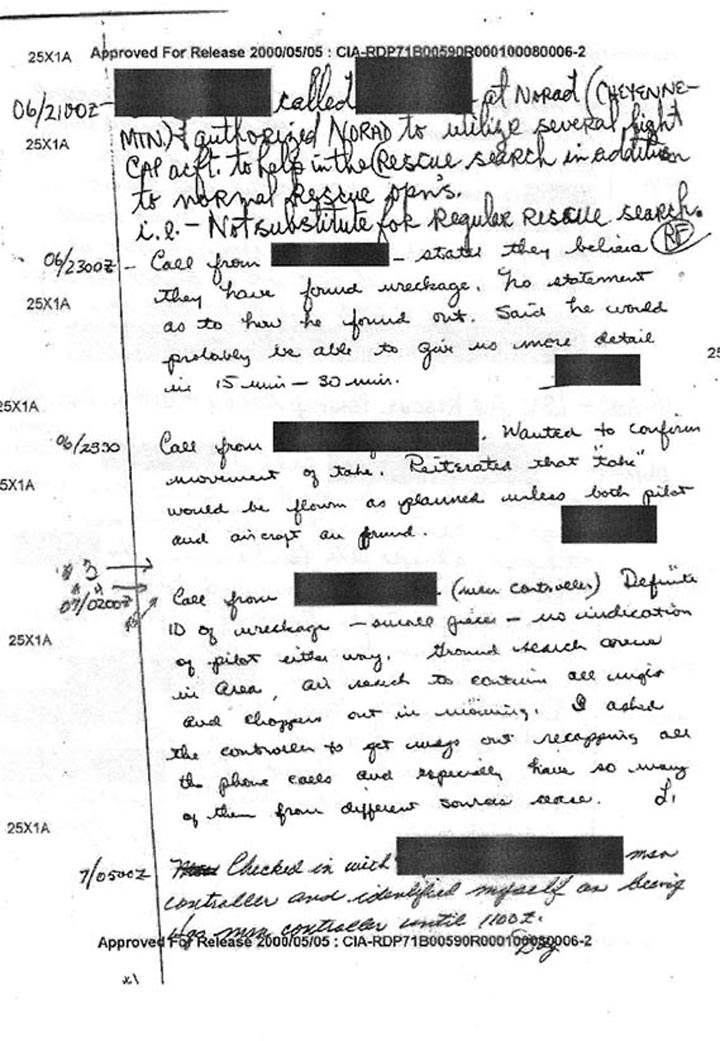 25X1A Approved For Release 2000/05/05 : CIA-RDP71B00590R000100080006-2
06/2100Z- called at NORAD (CHEYENNE-
MTN.) & authorized NORAD to utilize several flight
25X1A
CAP acft. to help in the Rescue search in addition
to normal Rescue opn's.
i.e. - Not substitute for Regular Rescue search.
RF
06/2300Z - Call from - states they believe
they have found wreckage. No statement
25X1A
as to how he found out. Said he would
probably be able to give us more detail
25
in 15 min - 30 min.
25X1A
06/2330 Call from . Wanted to confirm
movement of take. Reiterated that "take"
5X1A
would be flown as planned unless both pilot
and aircraft are found.
* 3
07/0200Z Call from (msn controller) Definite
ID of wreckage - small pieces - no indication
25X1A
of pilot either way. Ground search crews
in area, air search to continue all night
and choppers out in morning. I asked
the controller to get msgs out recapping all
the phone calls and especially have so many
of them from different sources cease.
25X1A
7/0500Z Checked in with msn
controller and identified myself as being
msn controller until 1100Z.
Approved For Release 2000/05/05 : CIA-RDP71B00590R000100080006-2
x1